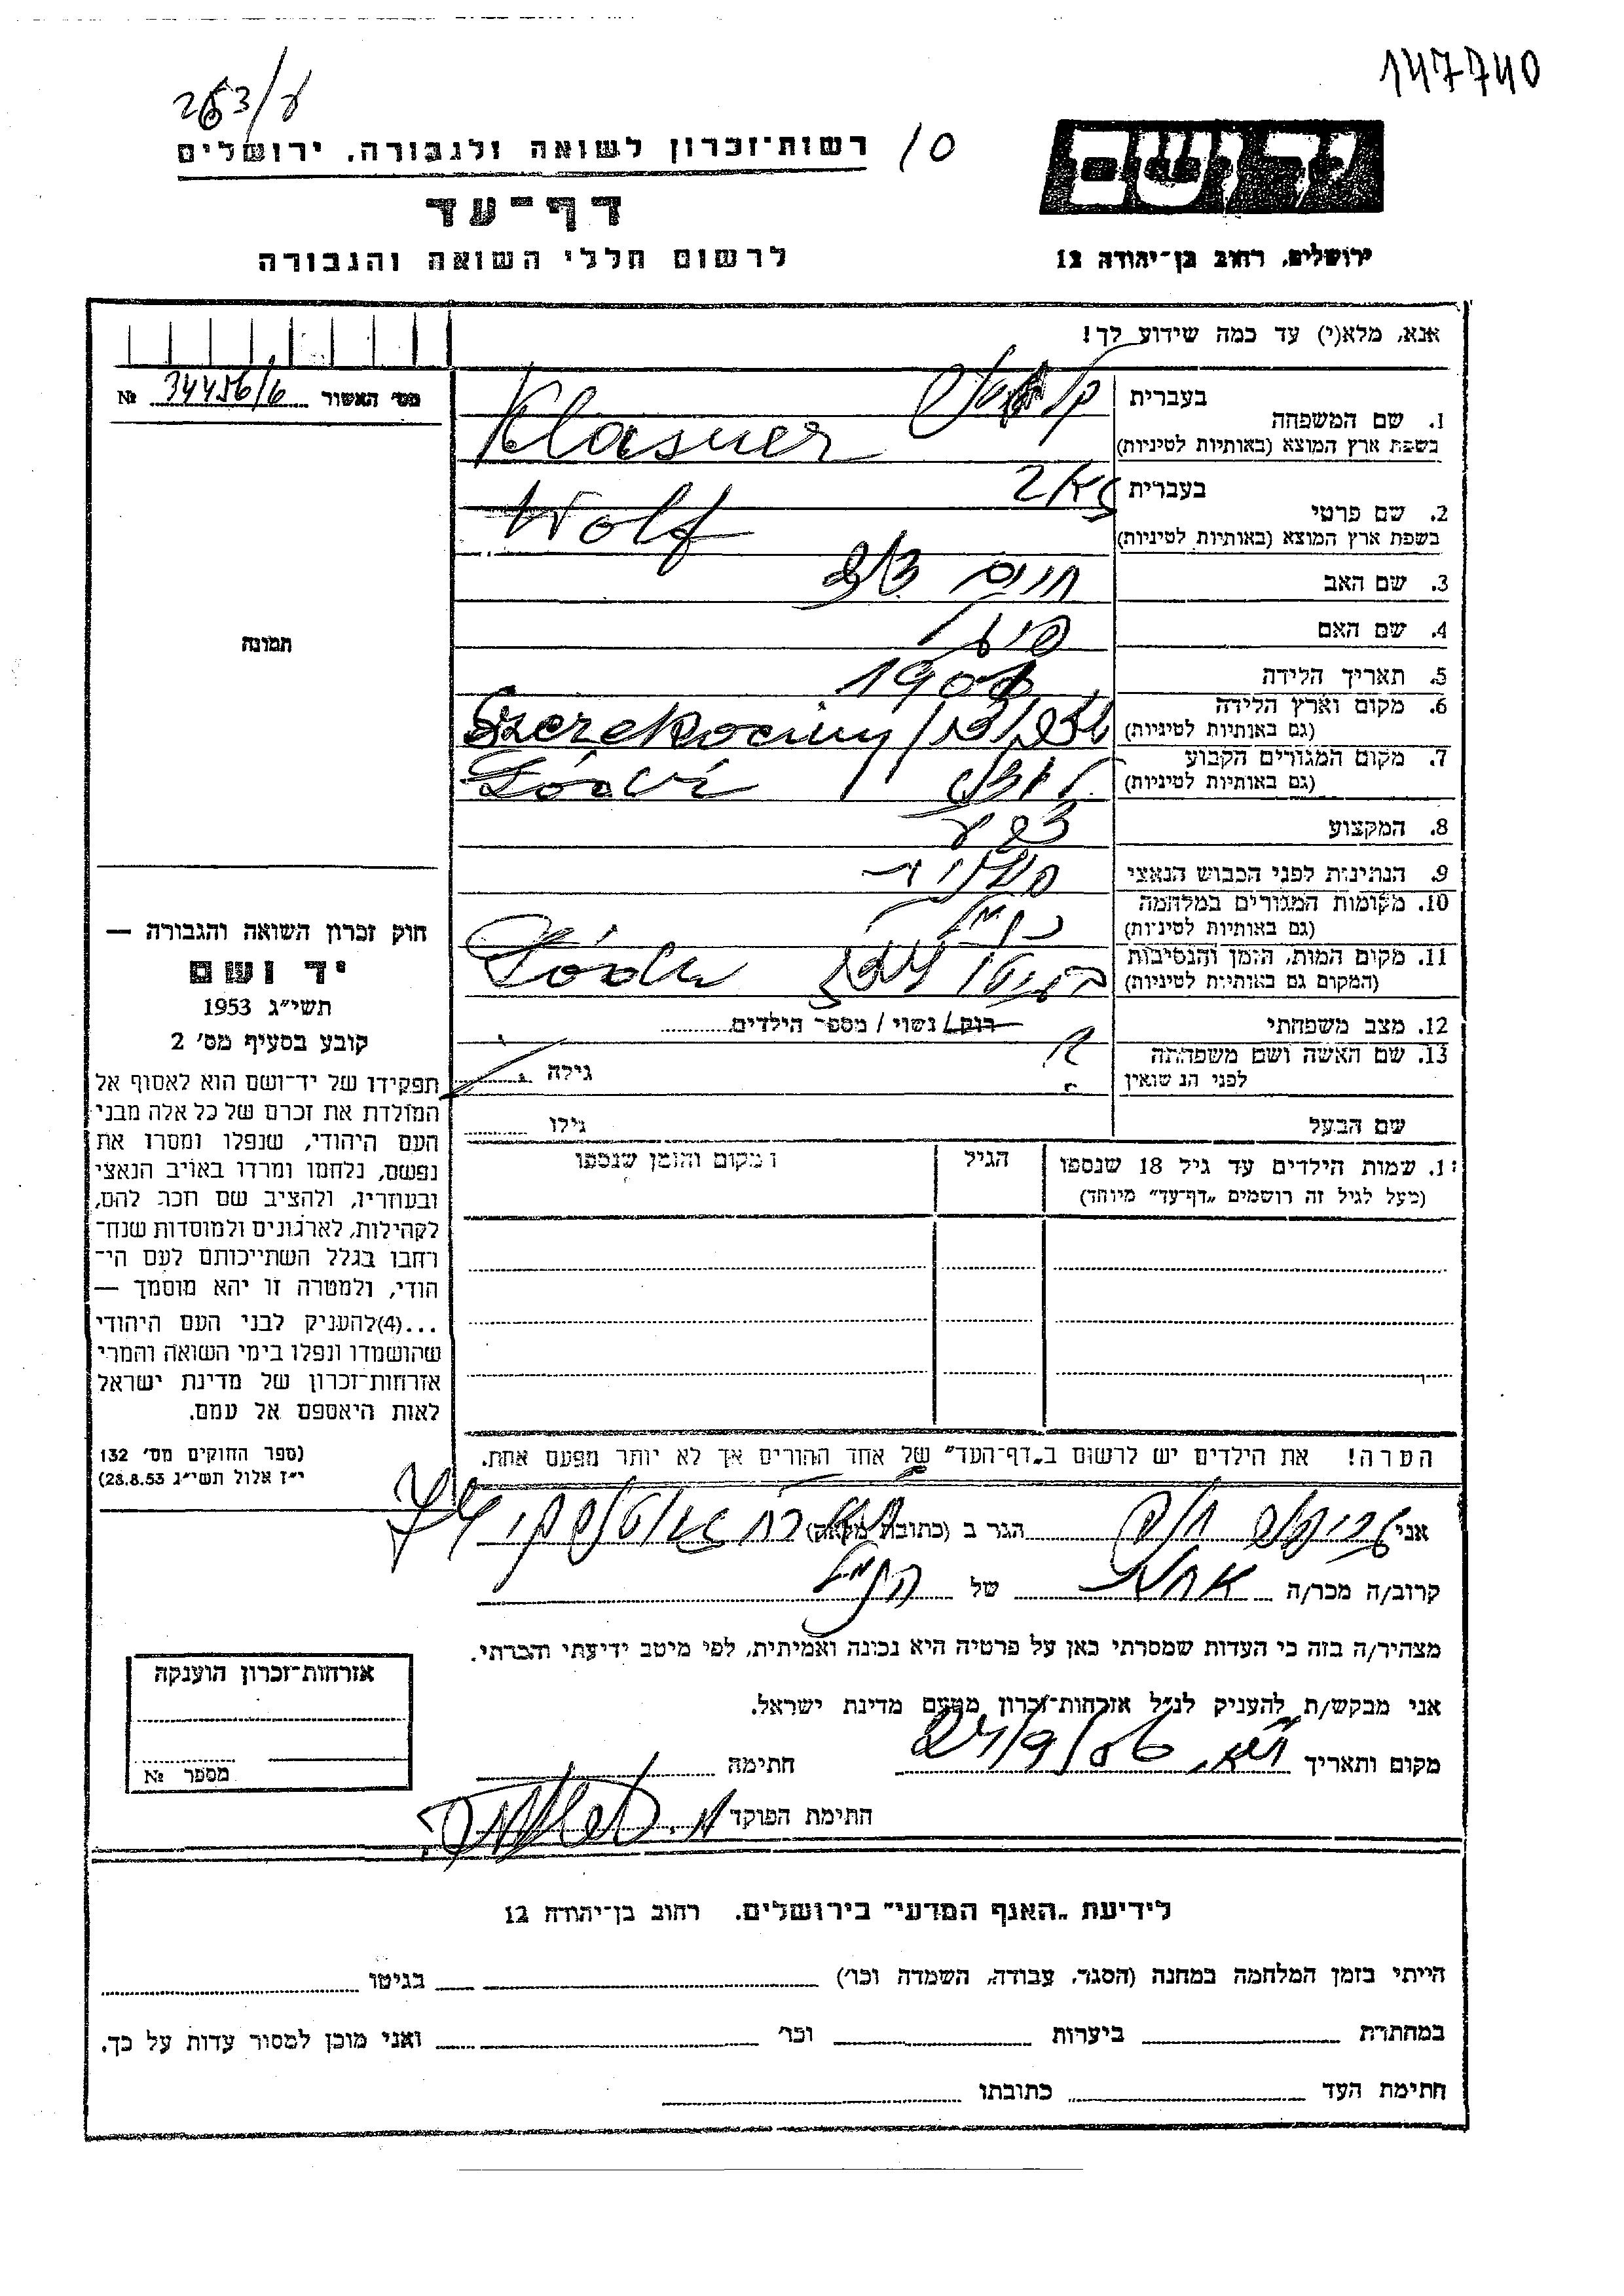 147740
263/ע
10
יד ושם
רשות־זכרון לשואה ולגבורה. ירושלים
דף־עד
לרשום חללי השואה והגבורה
ירושלים, רחוב בן־יהודה 12
אנא, מלא(י) עד כמה שידוע לך!
מס׳ האשור 34456/6 №
1. שם המשפחה
בעברית
בשפת ארץ המוצא (באותיות לטיניות) Klasner
2. שם פרטי
בעברית
בשפת ארץ המוצא (באותיות לטיניות) Wolf
3. שם האב חיים
4. שם האם
5. תאריך הלידה
6. מקום וארץ הלידה
(גם באותיות לטיניות) Szczekociny
7. מקום המגורים הקבוע
(גם באותיות לטיניות) לודז׳
8. המקצוע
9. הנתינות לפני הכבוש הנאצי פולנית
10. מקומות המגורים במלחמה
(גם באותיות לטיניות) כנ״ל
11. מקום המות, הזמן והנסיבות
(המקום גם באותיות לטיניות) בגיטו לודז׳
12. מצב משפחתי רוק / נשוי / מספר הילדים
13. שם האשה ושם משפחתה
לפני הנשואין
גילה
שם הבעל
גילו
1. שמות הילדים עד גיל 18 שנספו
(מעל לגיל זה רושמים „דף־עד״ מיוחד)
הגיל
המקום והזמן שנספו
הערה! את הילדים יש לרשום ב„דף־העד״ של אחד ההורים אך לא יותר מפעם אחת.
תמונה
חוק זכרון השואה והגבורה —
יד ושם
תשי״ג 1953
קובע בסעיף מס׳ 2
תפקידו של יד־ושם הוא לאסוף אל
המולדת את זכרם של כל אלה מבני
העם היהודי, שנפלו ומסרו את
נפשם, נלחמו ומרדו באויב הנאצי
ובעוזריו, ולהציב שם וזכר להם,
לקהילות, לארגונים ולמוסדות שנח־
רחבו בגלל השתייכותם לעם הי־
הודי, ולמטרה זו יהא מוסמך —
...(4)להעניק לבני העם היהודי
שהושמדו ונפלו בימי השואה והמרי
אזרחות־זכרון של מדינת ישראל
לאות היאספם אל עמם.
(ספר החוקים מס׳ 132
י״ז אלול תשי״ג 28.8.53)
אני הגר ב (כתובת מלאה)
קרוב/ה מכר/ה של הנ״ל
מצהיר/ה בזה כי העדות שמסרתי כאן על פרטיה היא נכונה ואמיתית, לפי מיטב ידיעתי והכרתי.
אני מבקש/ת להעניק לנ״ל אזרחות־זכרון מטעם מדינת ישראל.
מקום ותאריך חתימה
חתימת הפוקד
אזרחות־זכרון הוענקה
מספר №
לידיעת „האגף המדעי״ בירושלים. רחוב בן־יהודה 12
הייתי בזמן המלחמה במחנה (הסגר, עבודה, השמדה וכו׳) בגיטו
במחתרת ביערות וכו׳ ואני מוכן למסור עדות על כך.
חתימת העד כתובתו